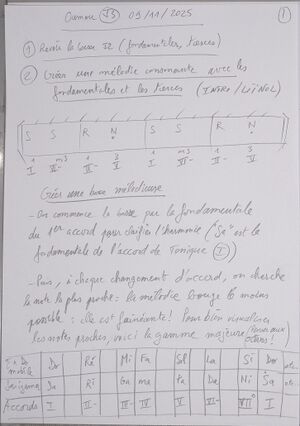 J3 09/11/2025 ①
① Revoir le cours J2 (fondamentales, tierces)
② Créer une mélodie consonante avec les
fondamentales et les tierces (INTRO /
S S R N S S R N
1 m3 1 3 1 m3 1 3
Créer une base mélodieuse
- On commence la basse par la fondamentale
du 1er accord pour clarifier l'harmonie ("Sa" est la
fondamentale de l'accord de Tonique Ⓘ)
- Puis, à chaque changement d'accord, on cherche
la note la plus proche: la mélodie bouge le moins
possible: elle est fainéante! Pour bien visualiser
les notes proches, voici la gamme majeure
Do mobile Do Ré Mi Fa Sol La Si Do etc.
Sargama Sa Ri Ga ma Pa Da Ni Sa etc.
Accords I II- III- IV V VI- VII° I